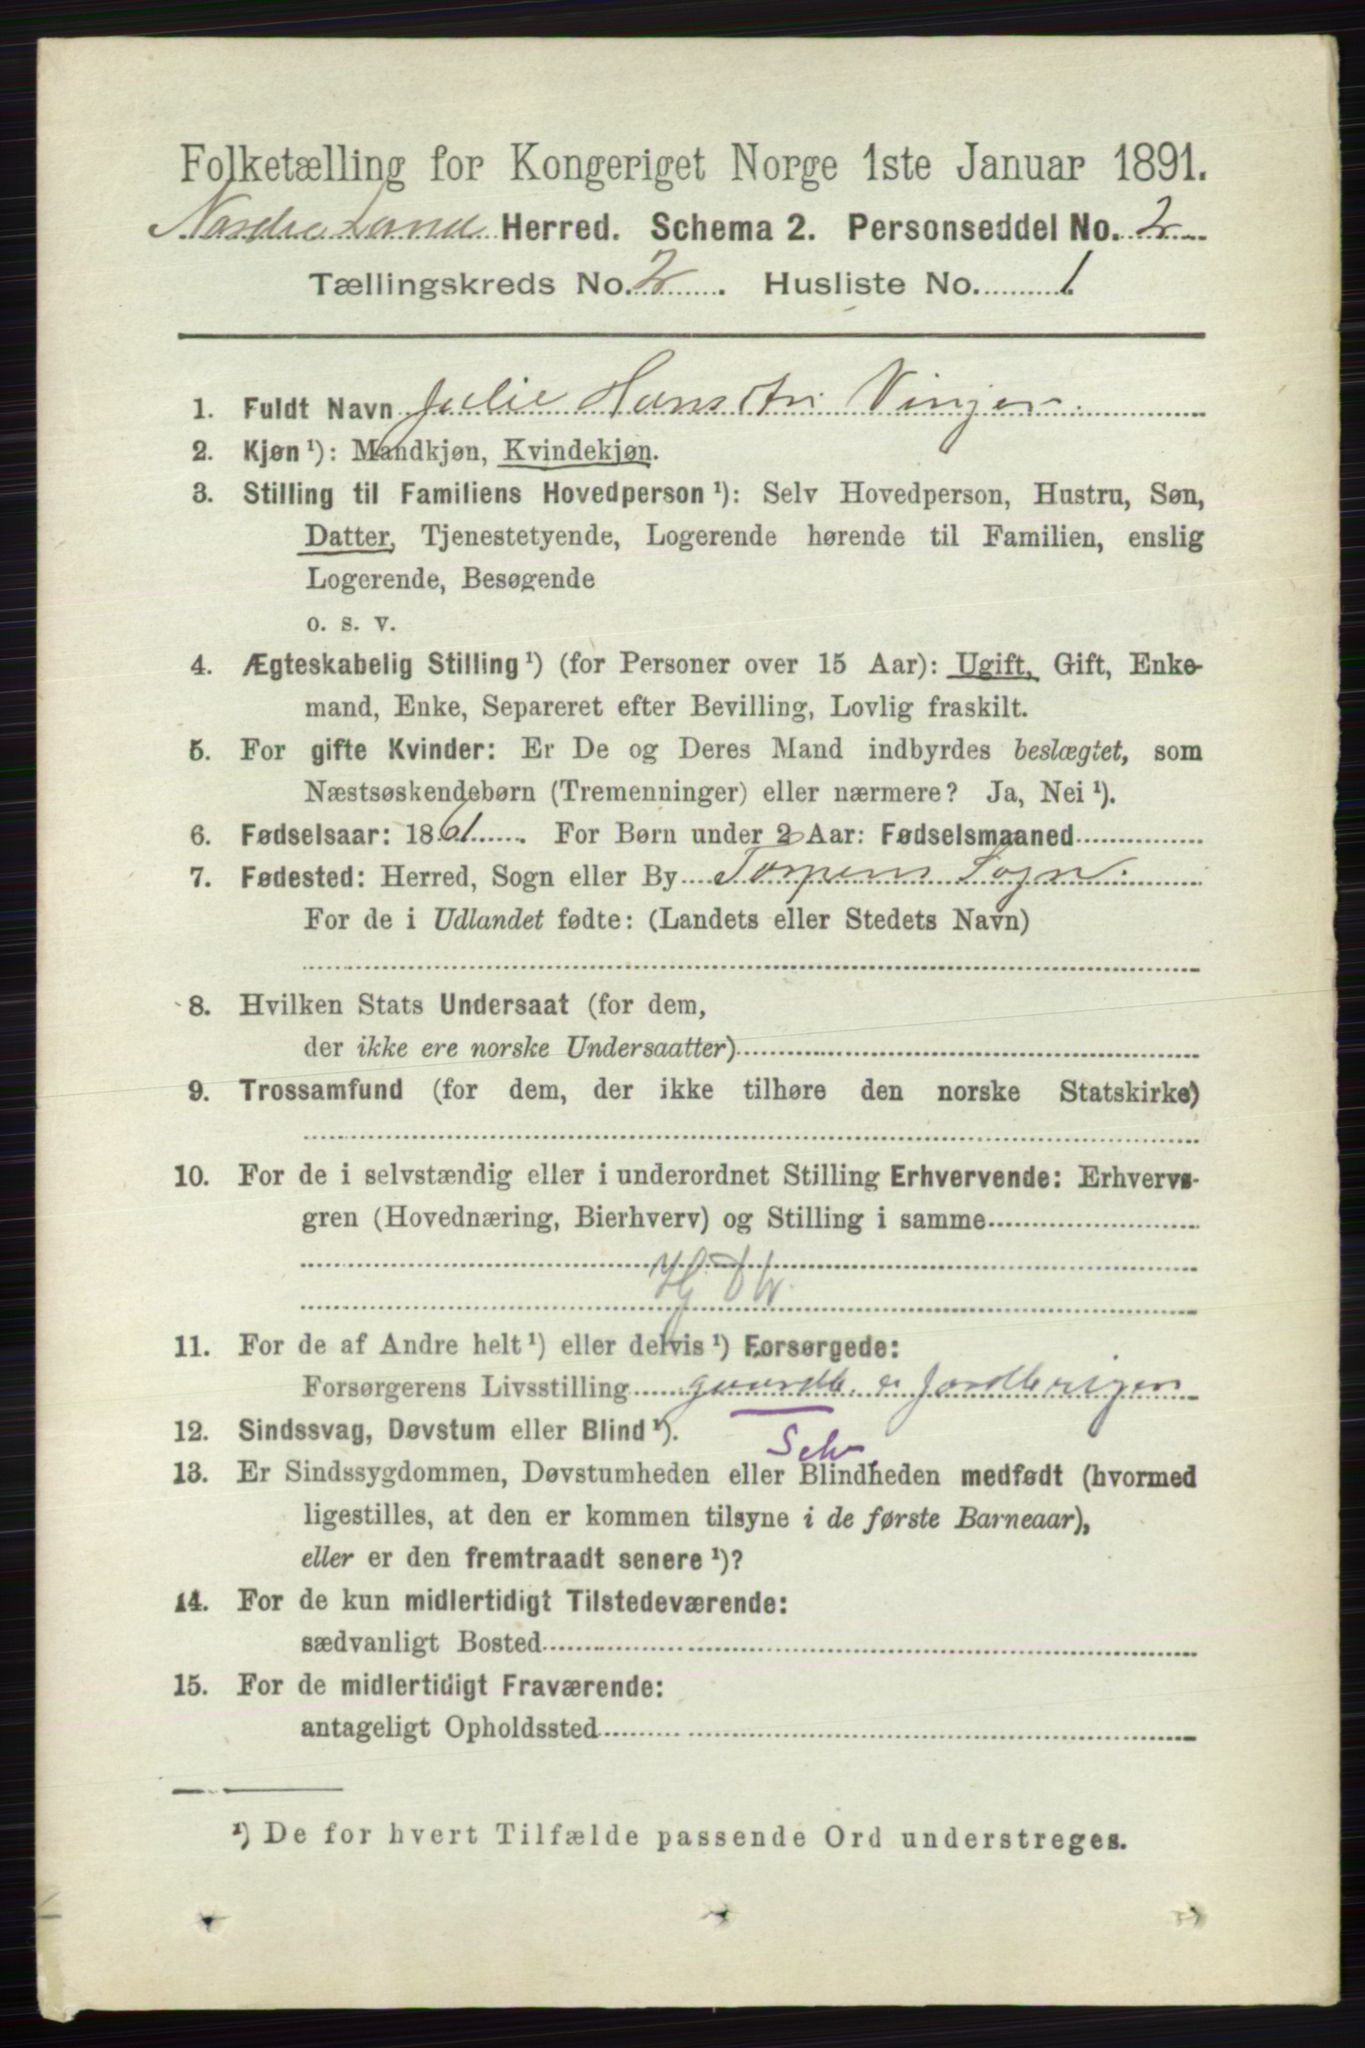 Folketælling for Kongeriget Norge 1ste Januar 1891.
Nordre Land Herred. Schema 2. Personseddel No. 2
Tællingskreds No. 2. Husliste No. 1
1. Fuldt Navn Julie Hansdtr. Vinger.
2. Kjøn ¹): Mandkjøn, Kvindekjøn.
3. Stilling til Familiens Hovedperson ¹): Selv Hovedperson, Hustru, Søn,
Datter, Tjenestetyende, Logerende hørende til Familien, enslig
Logerende, Besøgende
o. s. v.
4. Ægteskabelig Stilling ¹) (for Personer over 15 Aar): Ugift, Gift, Enke-
mand, Enke, Separeret efter Bevilling, Lovlig fraskilt.
5. For gifte Kvinder: Er De og Deres Mand indbyrdes beslægtet, som
Næstsøskendebørn (Tremenninger) eller nærmere? Ja, Nei ¹).
6. Fødselsaar: 1861. For Børn under 2 Aar: Fødselsmaaned
7. Fødested: Herred, Sogn eller By Torpens Sogn.
For de i Udlandet fødte: (Landets eller Stedets Navn)
8. Hvilken Stats Undersaat (for dem,
der ikke ere norske Undersaatter)
9. Trossamfund (for dem, der ikke tilhøre den norske Statskirke)
10. For de i selvstændig eller i underordnet Stilling Erhvervende: Erhvervs-
gren (Hovednæring, Bierhverv) og Stilling i samme
11. For de af Andre helt ¹) eller delvis ¹) Forsørgede:
Forsørgerens Livsstilling gaardb.
12. Sindssvag, Døvstum eller Blind ¹).
Selv.
13. Er Sindssygdommen, Døvstumheden eller Blindheden medfødt (hvormed
ligestilles, at den er kommen tilsyne i de første Barneaar),
eller er den fremtraadt senere ¹)?
14. For de kun midlertidigt Tilstedeværende:
sædvanligt Bosted
15. For de midlertidigt Fraværende:
antageligt Opholdssted
¹) De for hvert Tilfælde passende Ord understreges.